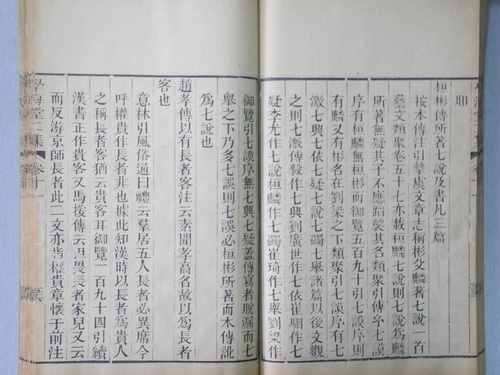 耶
桓彬傳所著七說及書凡三篇
按本傳注引摯虞文章志稱彬父麟著七說一首
藝文類聚卷五十七亦載桓麟七說則七說爲麟
所著無疑其子不應蹈襲其名類聚引傅子七謨
序有桓麟七說御覽五百九十引七謨序有七說
有麟又有彬名在劉梁之下類聚引七謨序有七
激七興七依七疑七說七蠲七舉諸篇以後文觀
之則七激傅毅作七興劉廣世作七依崔駰作七
疑李尤作七說桓麟作七蠲崔琦作七舉劉梁作
御覽引七謨序無七興七疑蓋傳寫者脫漏而七
舉之下乃多七誤則七誤必桓彬所著而本傳訛
爲七說也
趙孝傳以有長者客注云素聞孝高名故以爲長者
客也
意林引風俗通曰禮云羣居五人長者必異席今
呼權貴作長者非也據此知漢時以長者爲貴人
之稱長者客猶云貴客耳御覽一百九十四引續
漢書正作貴客又馬援傳云但畏長者家兒又云
而反游京師長者此二文亦皆權貴章懷于前注
學海堂二集 卷十一